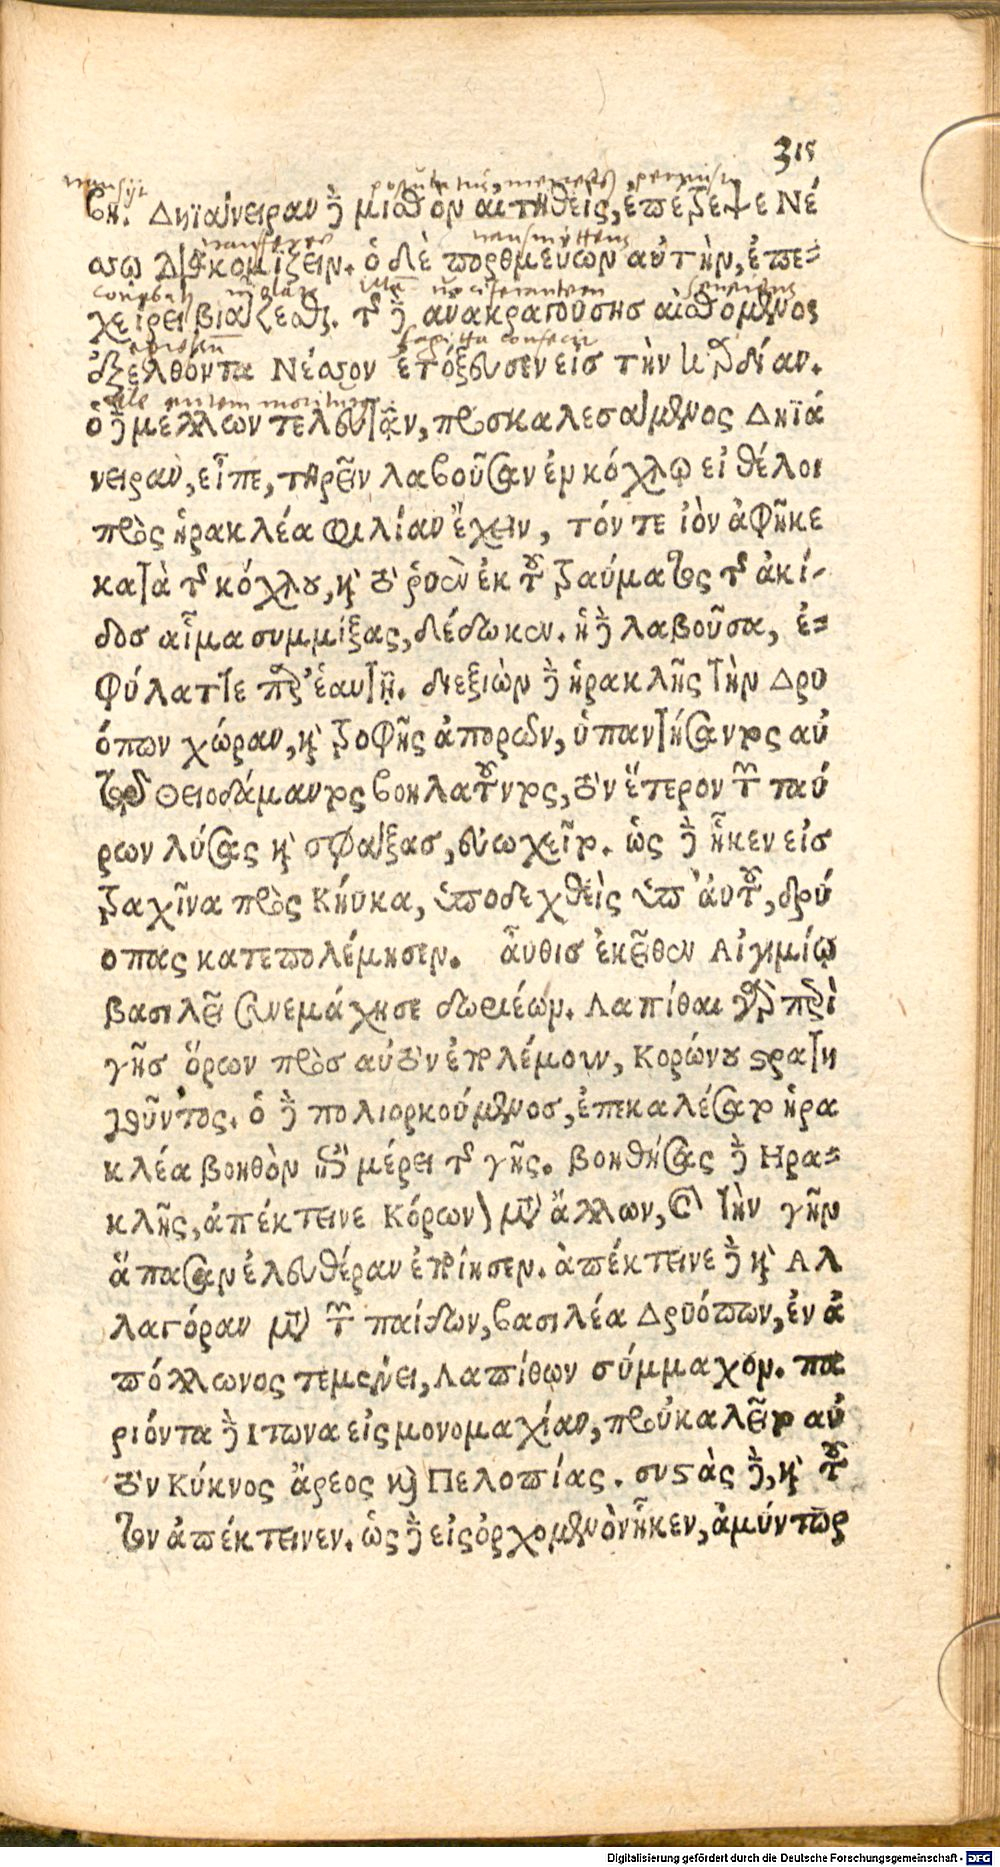 315
βη. Δηϊάνειραν δὲ μισθὸν αἰτηθεὶς, ἐπέτρεψε Νέ
σσῳ διακομίζειν. ὁ δὲ πορθμεύων αὐτὴν, ἐπε=
χείρει βιάζεσθαι. τῆς δὲ ἀνακραγούσης αἰσθόμενος
ἐξελθόντα Νέσσον ἐτόξευσεν εἰς τὴν καρδίαν.
ὁ δὲ μέλλων τελευτᾶν, προσκαλεσάμενος Δηϊά
νειραν, εἶπε, τηρεῖν λαβοῦσαν ἐν κόχλῳ εἰ θέλοι
πρὸς ἡρακλέα φιλίαν ἔχειν, τόν τε ἰὸν ἀφῆκε
κατὰ τῆς κόχλου, καὶ τὸ ῥυὲν ἐκ τοῦ τραύματος τῆς ἀκί-
δος αἷμα συμμίξας, δέδωκεν. ἡ δὲ λαβοῦσα, ἐ=
φύλαττε παρ' ἑαυτῇ. διεξιὼν δὲ ἡρακλῆς τὴν Δρυ
όπων χώραν, καὶ τροφῆς ἀπορῶν, ὑπαντήσαντος αὐ
τῷ Θειοδάμαντος βοηλατοῦντος, τὸν ἕτερον τῶν ταύ
ρων λύσας καὶ σφάξας, εὐωχεῖτο. ὡς δὲ ἧκεν εἰς
τραχῖνα πρὸς Κήϋκα, ὑποδεχθεὶς ὑπ' αὐτοῦ, δρύ
οπας κατεπολέμησεν. αὖθις ἐκεῖθεν Αἰγιμίῳ
βασιλεῖ συνεμάχησε δωριέων. Λαπίθαι γὰρ περὶ
γῆς ὅρων πρὸς αὐτὸν ἐπολέμουν, Κορώνου στρατη
γοῦντος. ὁ δὲ πολιορκούμενος, ἐπεκαλέσατο ἡρα
κλέα βοηθὸν ἐπὶ μέρει τῆς γῆς. βοηθήσας δὲ Ηρα=
κλῆς, ἀπέκτεινε Κόρωνον μετὰ ἄλλων, καὶ τὴν γῆν
ἅπασαν ἐλευθέραν ἐποίησεν. ἀπέκτεινε δὲ καὶ Αλ
λαγόραν μετὰ τῶν παίδων, βασιλέα Δρυόπων, ἐν ἀ
πόλλωνος τεμένει, Λαπίθων σύμμαχον. πα
ριόντα δὲ Ιτωνα εἰς μονομαχίαν, προὐκαλεῖτο αὐ
τὸν Κύκνος ἄρεος καὶ Πελοπίας. συστὰς δὲ, καὶ τοῦ
τον ἀπέκτεινεν. ὡς δὲ εἰς ὀρχομενὸν ἧκεν, ἀμύντωρ
Digitalisierung gefördert durch die Deutsche Forschungsgemeinschaft - DFG